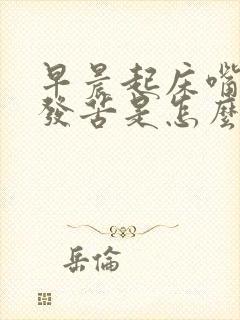 早晨起床嘴
發苦是怎麼
岳倫